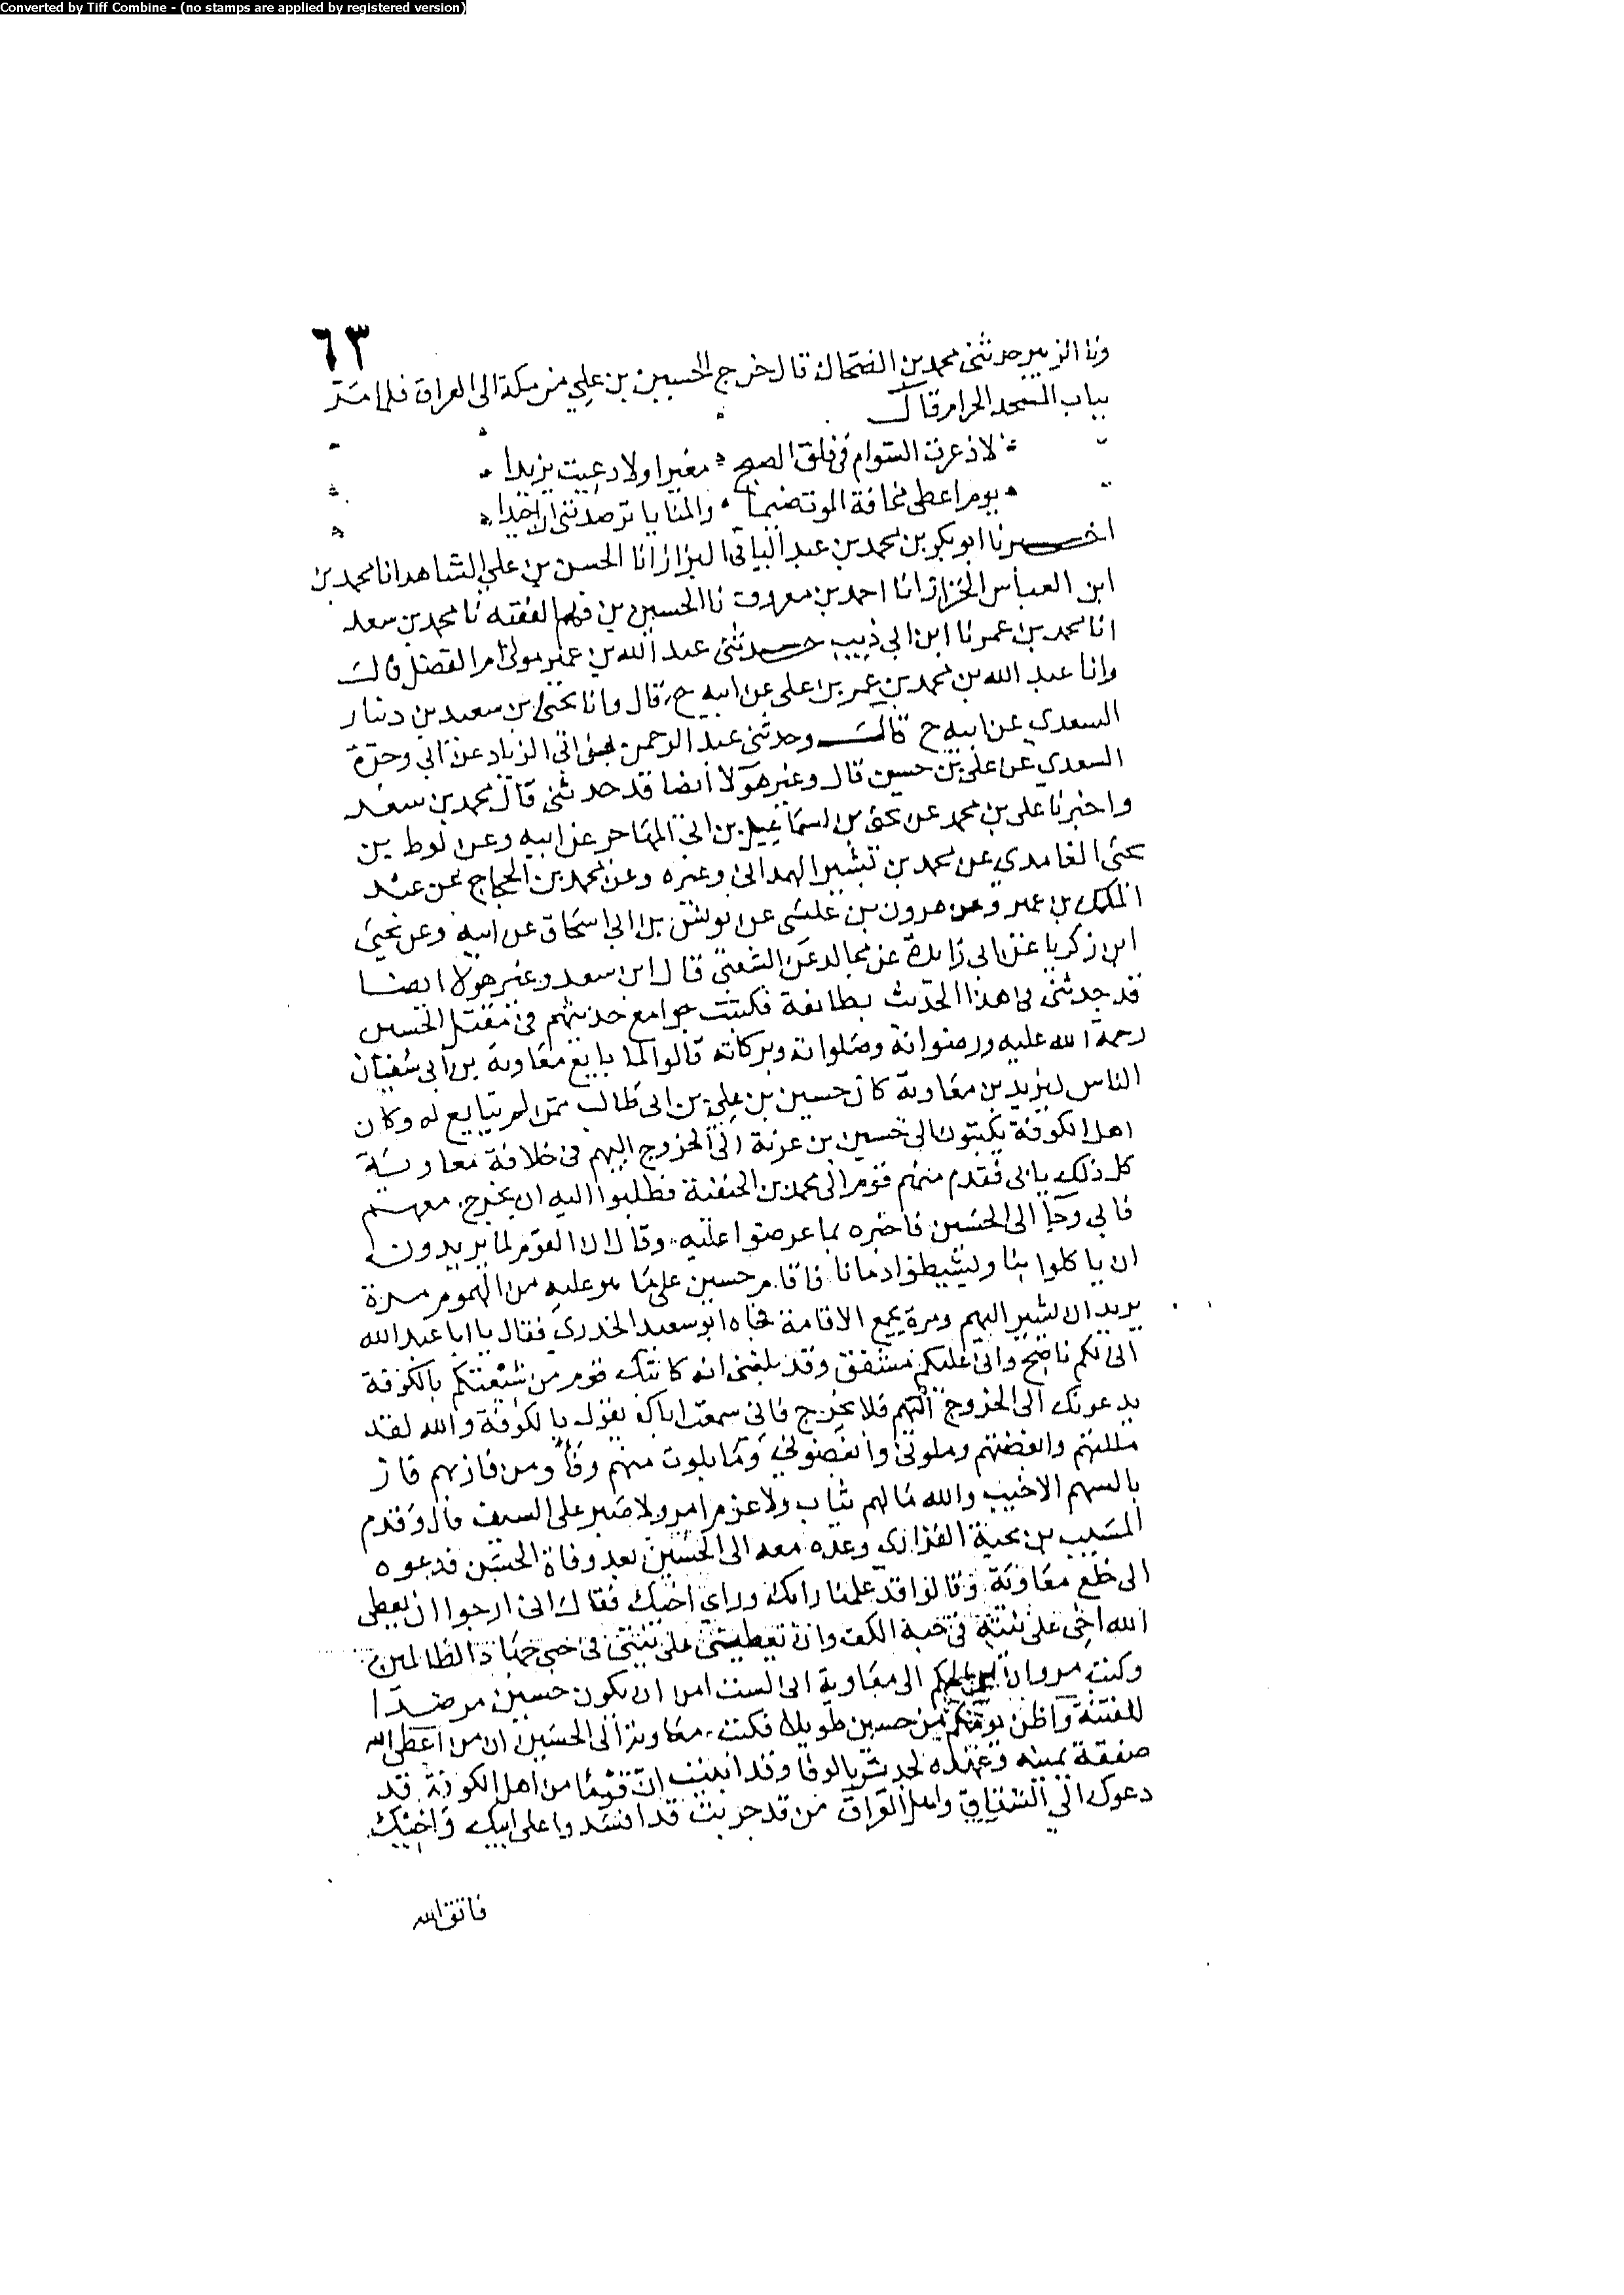 Converted by Tiff Combine - (no stamps are applied by registered version)
٦٣
ونا الزبير حدثني محمد بن الضحاك قال خرج الحسين بن علي من مكة الى العراق فلما مر
بباب المسجد الحرام قال
لا ذعرت السوام في فلق الصبح مغيرا ولا دعيت يزيدا
يوم اعطى مخافة الموت ضيما والمنايا ترصدنني ان احيدا
اخبرنا ابو بكر بن محمد بن عبد الباقي البزاز انا الحسن بن علي الشاهد انا محمد بن
ابن العباس الخزاز انا احمد بن معروف نا الحسين بن فهم الفقيه نا محمد بن سعد
انا محمد بن عمر نا ابن ابي ذيب حدثني عبد الله بن عمير مولى ام الفضل قال
وانا عبد الله بن محمد بن عمر بن علي عن ابيه ح قال وانا يحيى بن سعيد بن دينار
السعدي عن ابيه ح قال وحدثني عبد الرحمن بن ابي الزناد عن ابي وجزة
السعدي عن علي بن حسين قال وغير هولا ايضا قد حدثني قال محمد بن سعد
واخبرنا علي بن محمد عن يحيى بن اسماعيل بن ابي المهاجر عن ابيه وعن لوط بن
يحيى الغامدي عن محمد بن بشير الهمداني وغيره وعن محمد بن الحجاج عن عبد
الملك بن عمير وعن هرون بن عيسى عن يونس بن ابي اسحاق عن ابيه وعن يحيى
ابن زكريا عن ابي زايدة عن مجالد عن الشعبي قال ابن سعد وغير هولا ايضا
قد حدثني في هذا الحديث بطائفة فكتبت جوامع حديثهم في مقتل الحسين
رحمة الله عليه ورضوانه وصلواته وبركاته قالوا لما بايع معاوية بن ابي سفيان
الناس ليزيد بن معاوية كان حسين بن علي بن ابي طالب ممن لم يبايع له وكان
اهل الكوفة يكتبون الى حسين بن عونه الى الخروج اليهم في خلافة معاوية
كل ذلك يابى فقدم منهم قوم الى محمد بن الحنفية فطلبوا اليه ان يخرج معهم
فابى وجا الى الحسين فاخبره بما عرضوا عليه وقال ان القوم لما يريدون
ان ياكلوا بنا ويشيطوا دمانا فاقام حسين على ما هو عليه من الهموم مرة
يريد ان يسير اليهم ومرة يجمع الاقامة فجاه ابو سعيد الخدري فقال يا ابا عبد الله
اني لكم ناصح واني عليكم مشفق وقد بلغني انه كاتبك قوم من شيعتكم بالكوفة
يدعونك الى الخروج اليهم فلا تخرج فاني سمعت اباك يقول بالكوفة والله لقد
مللتهم وابغضتهم وملوني وابغضوني وما بلوت منهم وفا ومن فاز بهم فاز
بالسهم الاخيب والله ما لهم ثبات ولا عزم امر ولا صبر على السيف قال وقدم
المسيب بن نجبة الفزاري وعدة معه الى الحسين بعد وفاة الحسن فدعوه
الى خلع معاوية وقالوا قد علمنا رايك وراي اخيك فقال اني ارجوا ان يعطي
الله اخي على نيته في حبه الكف وان يعطيني على نيتي في حبي جهاد الظالمين
وكتب مروان بن الحكم الى معاوية اني لست امن ان يكون حسين مرصدا
للفتنة واظن يومكم من حسين طويلا فكتب معاوية الى الحسين ان من اعطى الله
صفقة يمينه وعهده لجدير بالوفا وقد انبيت ان قوما من اهل الكوفة قد
دعوك الى الشقاق واهل العراق من قد جربت قد افسدوا على ابيك واخيك
فاتق الله